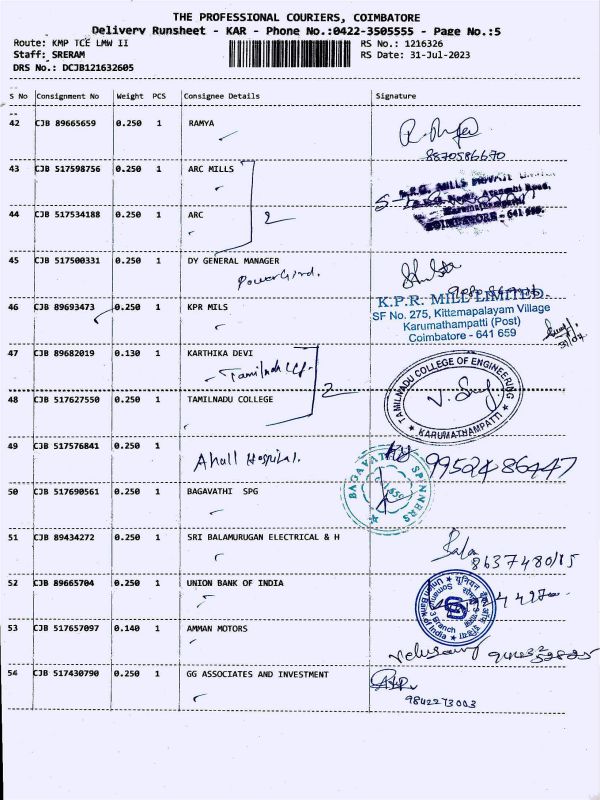 THE PROFESSIONAL COURIERS, COIMBATORE
Delivery Runsheet - KAR - Phone No.:0422-3505555 - Page No.:5
Route: KMP TCE LMW II RS No.: 1216326
Staff: SRERAM RS Date: 31-Jul-2023
DRS No.: DCJB121632605
S No Consignment No Weight PCS Consignee Details Signature
42 CJB 89665659 0.250 1 RAMYA
8870586670
43 CJB 517598756 0.250 1 ARC MILLS
44 CJB 517534188 0.250 1 ARC 2
COIMBATORE - 641 659.
45 CJB 517500331 0.250 1 DY GENERAL MANAGER
46 CJB 89693473 0.250 1 KPR MILS
K.P.R. MILL LIMITED.
SF No. 275, Kittampalayam Village
Karumathampatti (Post)
Coimbatore - 641 659
47 CJB 89682019 0.130 1 KARTHIKA DEVI
2
48 CJB 517627550 0.250 1 TAMILNADU COLLEGE
TAMILNADU COLLEGE OF ENGINEERING
★ KARUMATHAMPATTI ★
49 CJB 517576841 0.250 1
Hospital.
9952486447
50 CJB 517690561 0.250 1 BAGAVATHI SPG
BAGAVATHI SPINNERS
51 CJB 89434272 0.250 1 SRI BALAMURUGAN ELECTRICAL & H
52 CJB 89665704 0.250 1 UNION BANK OF INDIA
Union Bank of India
53 CJB 517657097 0.140 1 AMMAN MOTORS
54 CJB 517430790 0.250 1 GG ASSOCIATES AND INVESTMENT
9842273003